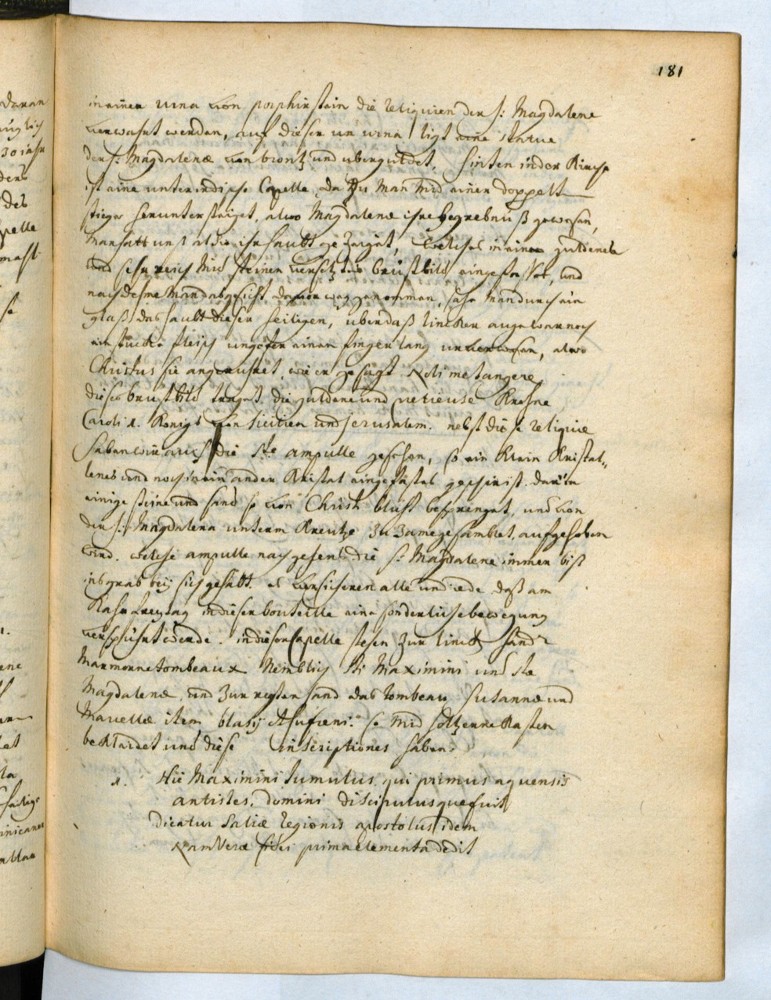 181
in einer urna von porphirstain die reliquien der S: Magdalene
verwahrt werden, auf dieser urna ligt eine statue
der S: Magdalenæ von brontz und ubergüldet. hinten in der Kirche
ist eine unterirdische Capelle, da man mid einer doppelt
stiege herunter steiget, alwo Magdalenæ ihre begrebnuß gewesen,
man hatt uns alda ihr haubt gezaiget, welches in einer guldenen
und sehr reich mid steinen versetzten brustbild eingefast ist, und
nachdeme man das gesicht darvon weg genohmen, sahe man durch ein
glaß das haubt dieser heiligen, über daß lincken auge war noch
ein stücke fleisch ungefer einen finger lang unverwesen, alwo
Christus sie angerühret wie er gesagt Noli me tangere
dieses brustbild traget die guldene und pretieuse Krohne
Caroli 2. Königs von Sicilien und Jerusalem. nebst diese reliquie
haben wir auch die Ste ampulle gesehen, so ein klein Kristal-
lenes und noch in ein ander Kristal eingefastes geschir ist. darin
einige steine und sand so von Christi bluht besprenget, und von
der S: Magdalena unterm Kreutze zusamegesamblet, aufgehoben
sind. welche ampulle nachgehents die S: Magdalene immer biß
ins grab bey sich gehabt. es versicheren alle und iede daß am
Kahr freytag in dieser bouteille eine sonderliche bewegung
verspühret werde. in dieser Capelle stehen zur lincken hand 2
Marmorne tombeaux Nemblich Sti Maximini und Stæ
Magdalenæ, und zur rechten hand das tombeau Susannæ und
Marcellæ item blasij so mid holtzerne Kasten
bekleidet und diese inscriptiones haben.
1. Hic Maximini tumulus, qui primus aquensis
antistes, domini discipulusque fuit
dicatur Galiæ regionis apostolus idem
Nam veræ fidei prima elementa dedit